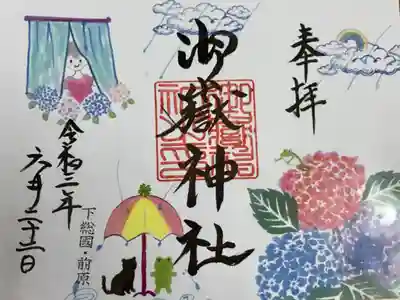 奉拝
御嶽神社
下総國・前原
令和三年
六月二十二日